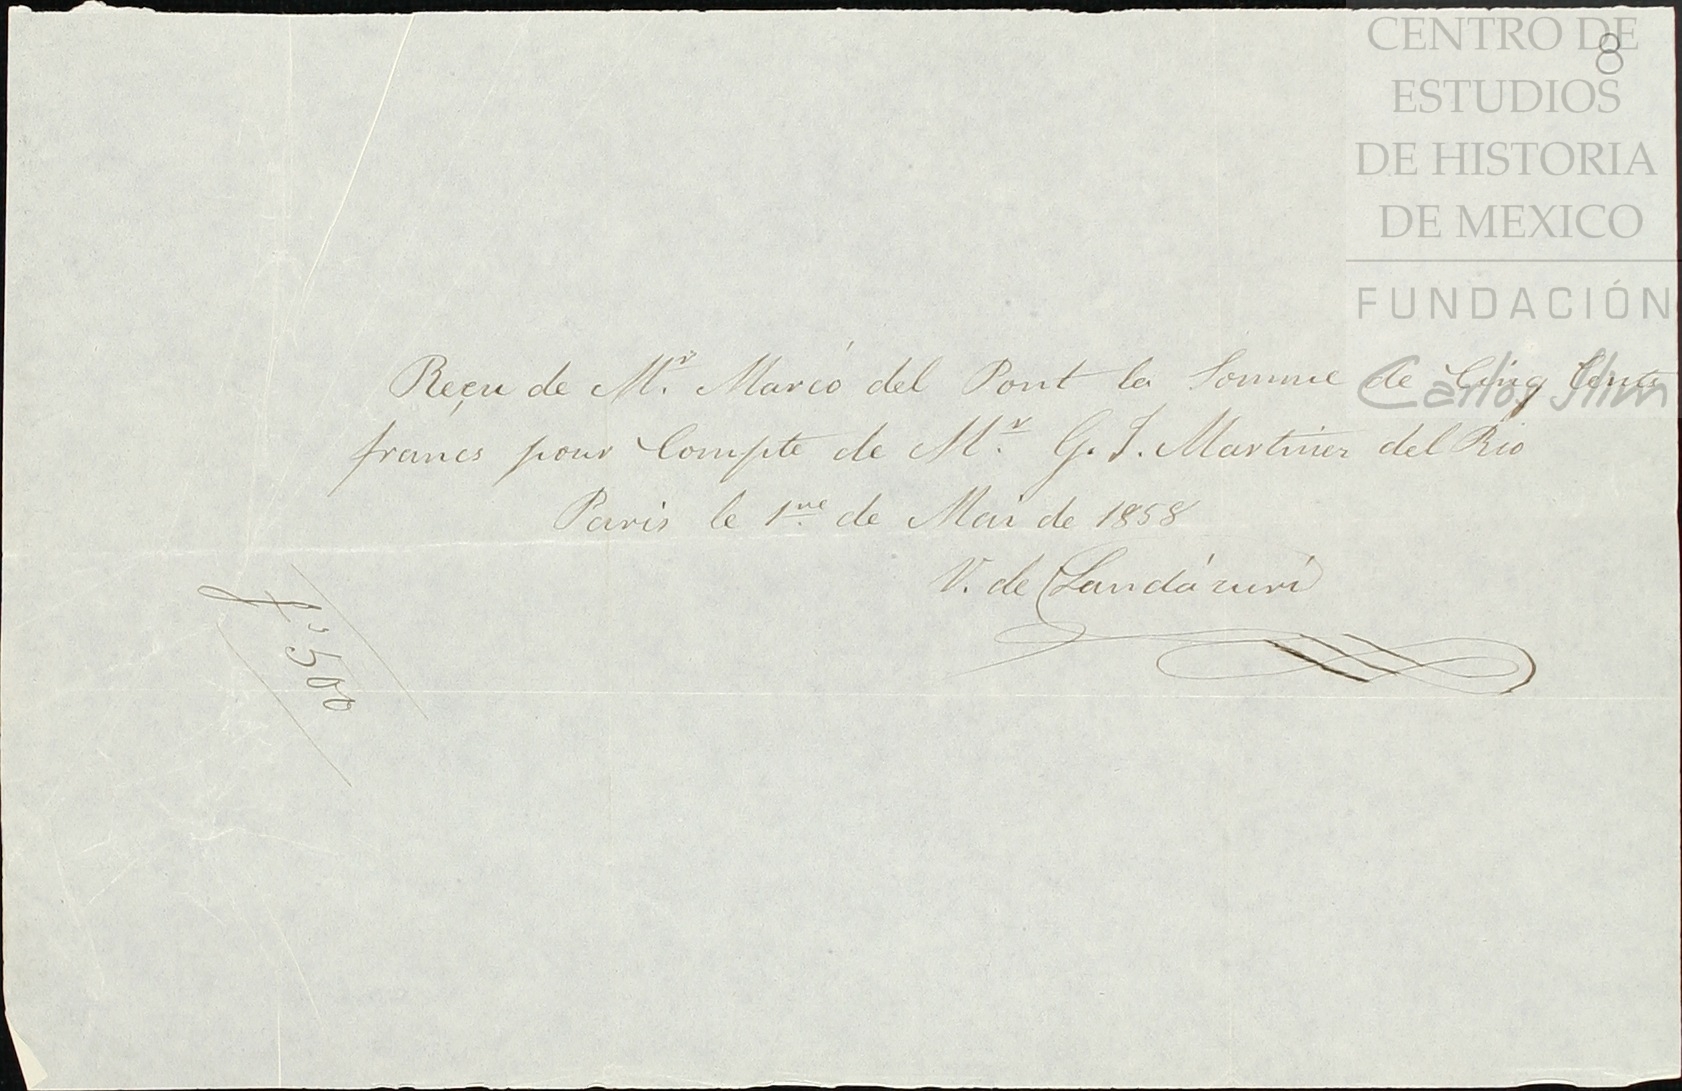 8
CENTRO DE
ESTUDIOS
DE HISTORIA
DE MEXICO
FUNDACIÓN
Carlos Slim
Reçu de M.r Marcó del Pont la Somme de Cinq Cents
francs pour Compte de M.r G. J. Martinez del Rio
Paris le 1.me de Mai de 1858
V. de Landázuri
f.s 500